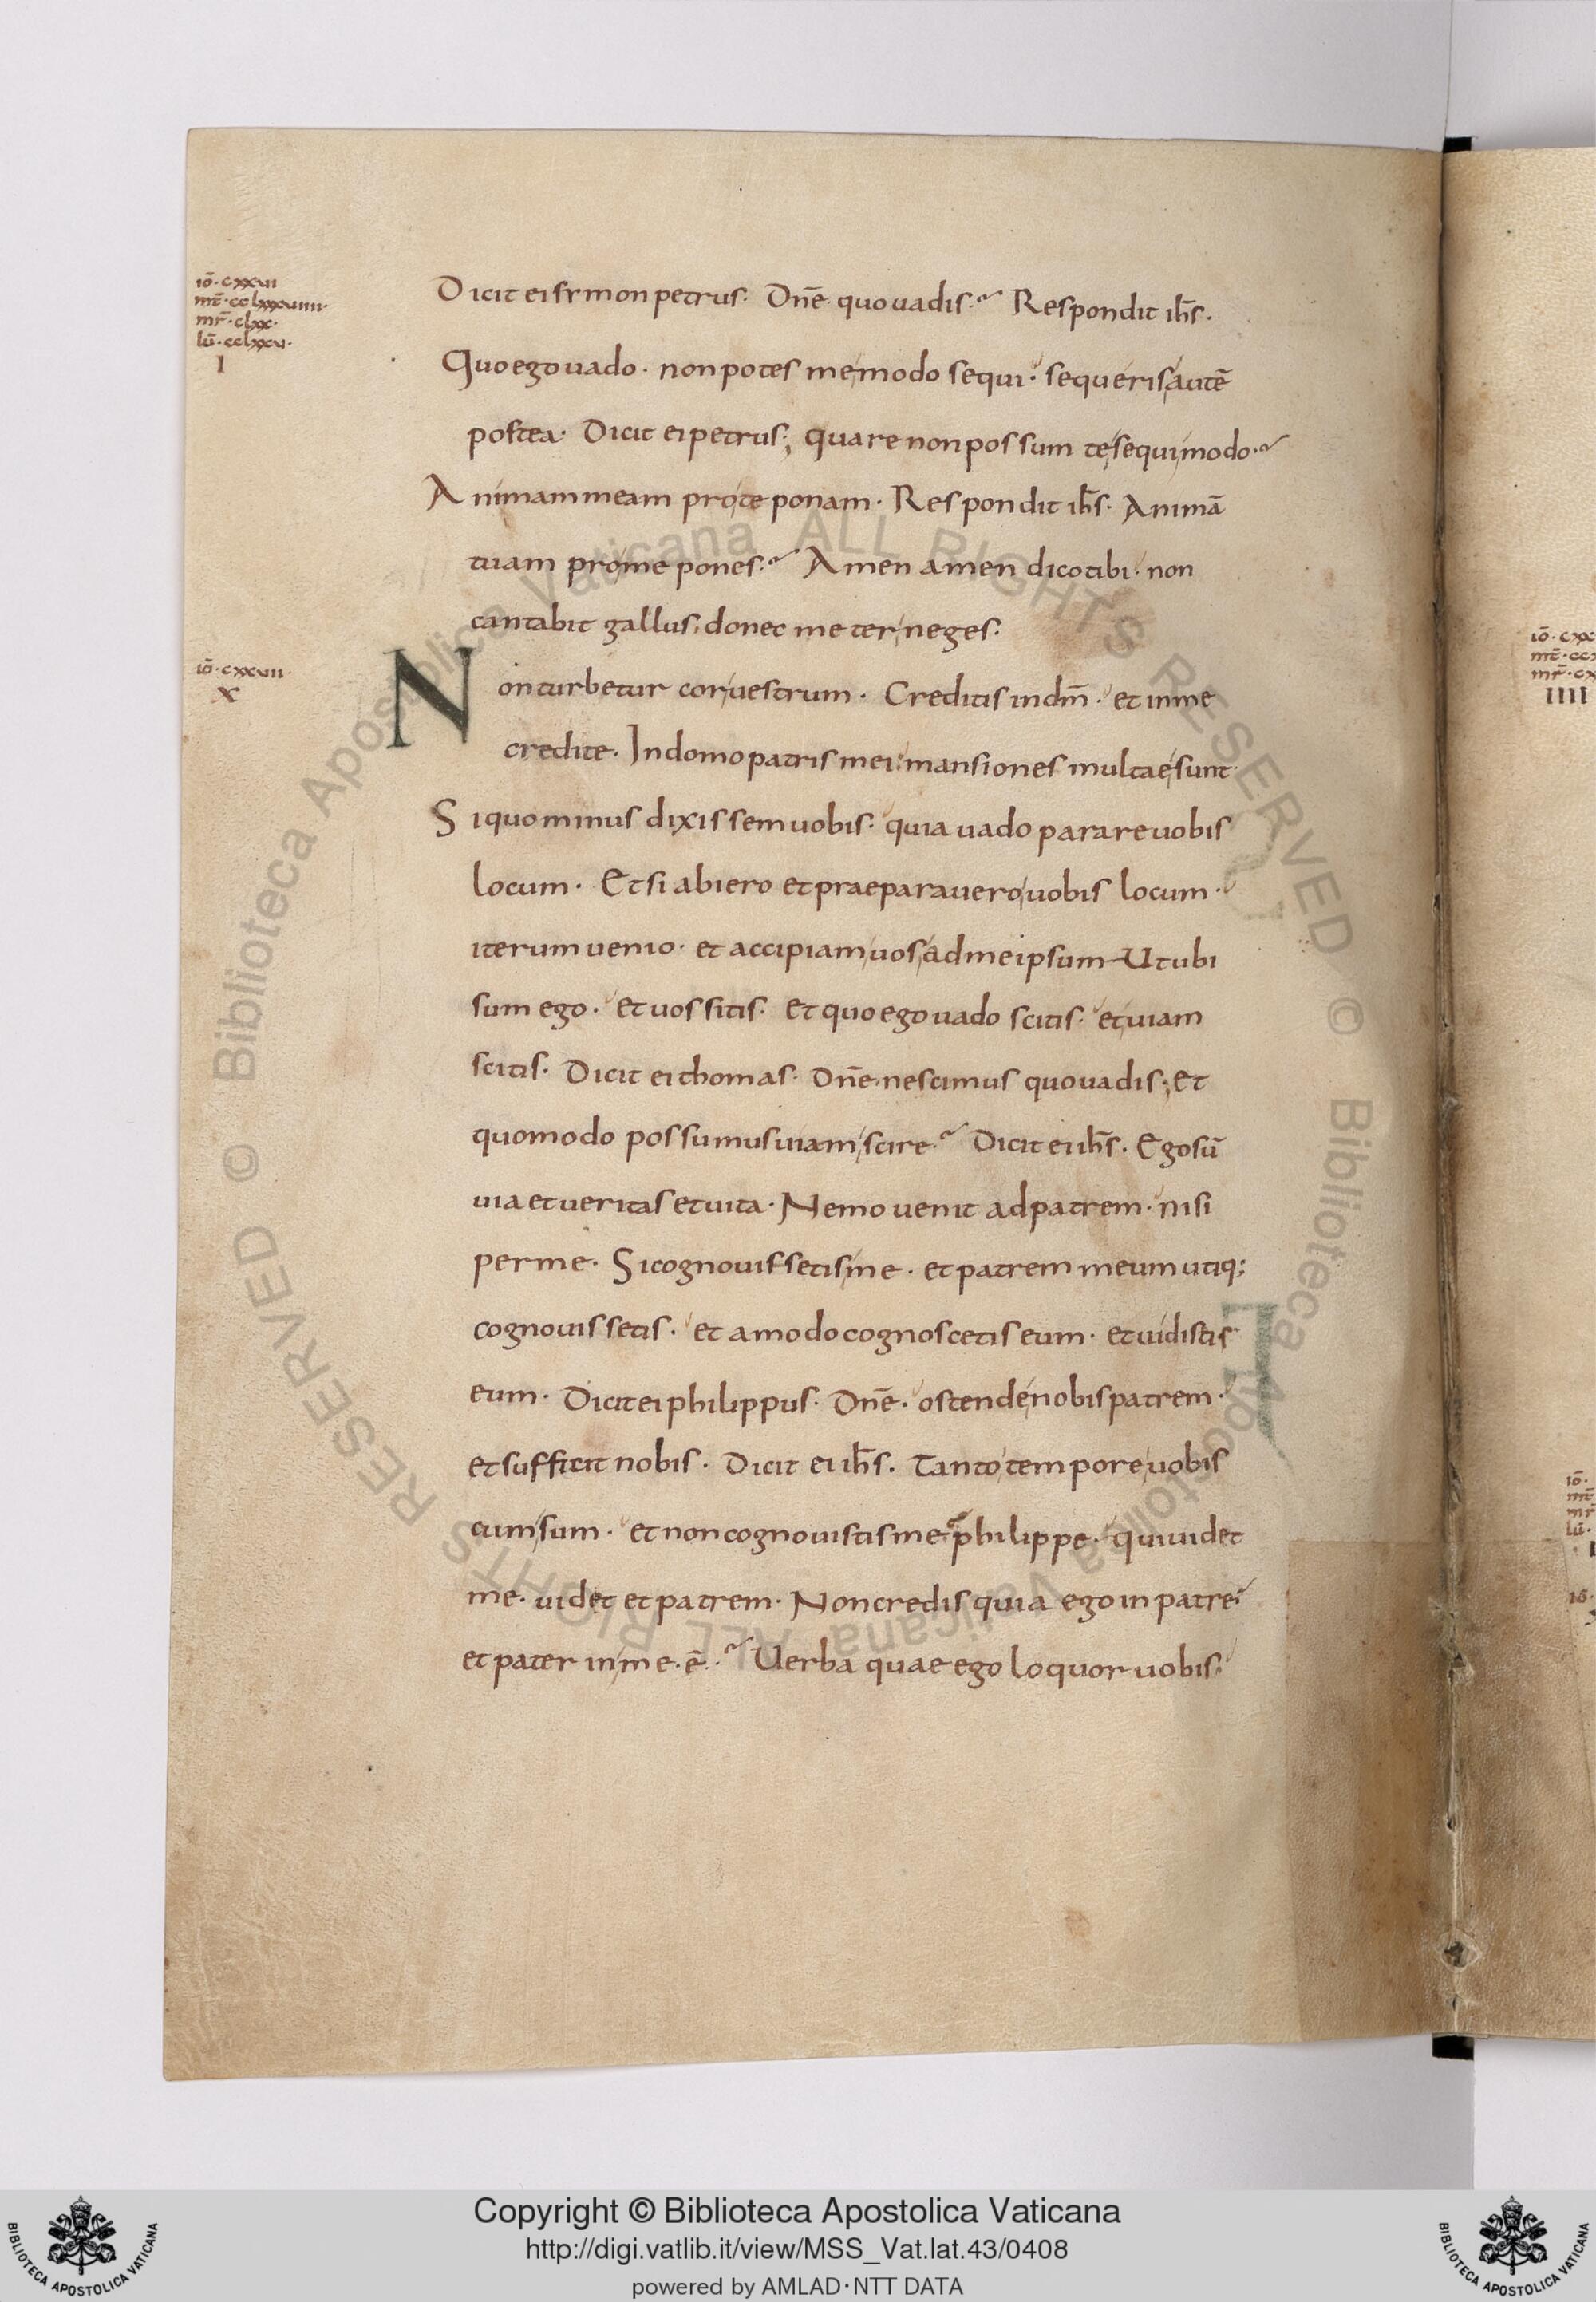 iō·cxxvi
mt̄·cclxxxviiii·
mr̄·clxx·
lū·cclxxv·
I
Dicit ei symon petrus· Dn̄e· quo uadis·? Respondit ih̄s·
Quo ego uado· non potes me modo sequi· sequeris autē
postea· Dicit ei petrus; quare non possum te sequi modo·?
Animam meam pro te ponam· Respondit ih̄s· Animā
tuam pro me pones·? Amen amen dico tibi· non
cantabit gallus, donec me ter neges·
iō·cxxvii
X
Non turbetur cor uestrum· Creditis in dm̄· et in me
credite· In domo patris mei· mansiones multae sunt·
Si quo minus dixissem uobis· quia uado parare uobis
locum· Et si abiero et praeparauero uobis locum·
iterum uenio· et accipiam uos ad me ipsum· Ut ubi
sum ego· et uos sitis· Et quo ego uado scitis· et uiam
scitis· Dicit ei thomas· Dn̄e· nescimus quo uadis; et
quomodo possumus uiam scire·? Dicit ei ih̄s· Ego sū
uia et ueritas et uita· Nemo uenit ad patrem· nisi
per me· Si cognouissetis me· et patrem meum utiq;
cognouissetis· et amodo cognoscetis eum· et uidistis
eum· Dicit ei philippus· Dn̄e· ostende nobis patrem·
et sufficit nobis· Dicit ei ih̄s· Tanto tempore uobis
cum sum· et non cognouistis me? philippe· qui uidet
me· uidet et patrem· Non credis quia ego in patre·
et pater in me·ē·? Uerba quae ego loquor uobis·
iō·cxx
mt̄·cc
mr̄·cx
IIII
iō·
mt̄
mr̄
lū·
iō·
© Biblioteca Apostolica Vaticana ALL RIGHTS RESERVED © Biblioteca Apostolica Vaticana ALL RIGHTS RESERVED
Copyright © Biblioteca Apostolica Vaticana
http://digi.vatlib.it/view/MSS_Vat.lat.43/0408
powered by AMLAD·NTT DATA
BIBLIOTECA APOSTOLICA VATICANA
BIBLIOTECA APOSTOLICA VATICANA